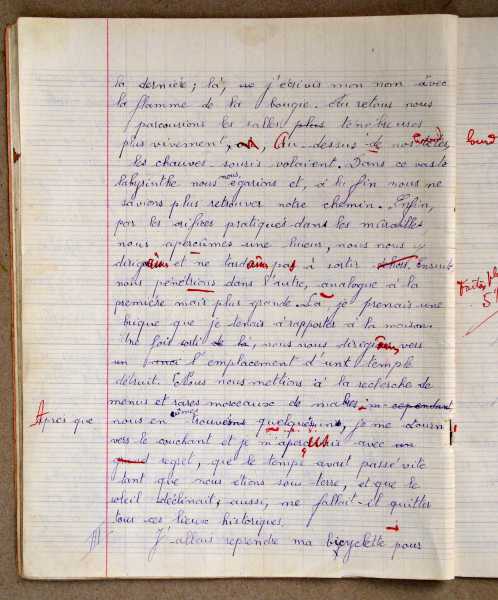 la dernière ; là, je j'écrivis mon nom avec
la flamme de la bougie. Au retour nous
parcourions les salles plus ténébreuses
plus vivement, Au-dessus de nos têtes lourd
les chauves-souris volaient. Dans ce vaste
labyrinthe nous nous égarions et, à la fin nous ne
savions plus retrouver notre chemin. Enfin,
par les orifices pratiqués dans les murailles
nous aperçûmes une lueur, nous nous y
dirigeâmes et ne tardâmes pas à sortir dehors. Ensuite
nous pénétrions dans l'autre, analogue à la
première mais plus grande. Là je prenais une
brique que je tenais à rapporter à la maison.
Une fois sorti de là, nous nous dirigeâmes vers
un l'emplacement d'un temple
détruit. Nous nous mettions à la recherche de
menus et rares morceaux de marbre, cependant
Après que nous en eûmes trouvé quelques uns, je me tourn
vers le couchant et je m'aperçus avec un
grand regret, que le temps avait passé vite
tant que nous étions sous terre, et que le
soleil déclinait, aussi, me fallait-il quitter
tous ces lieux historiques.
J'allais reprendre ma bicyclette pour